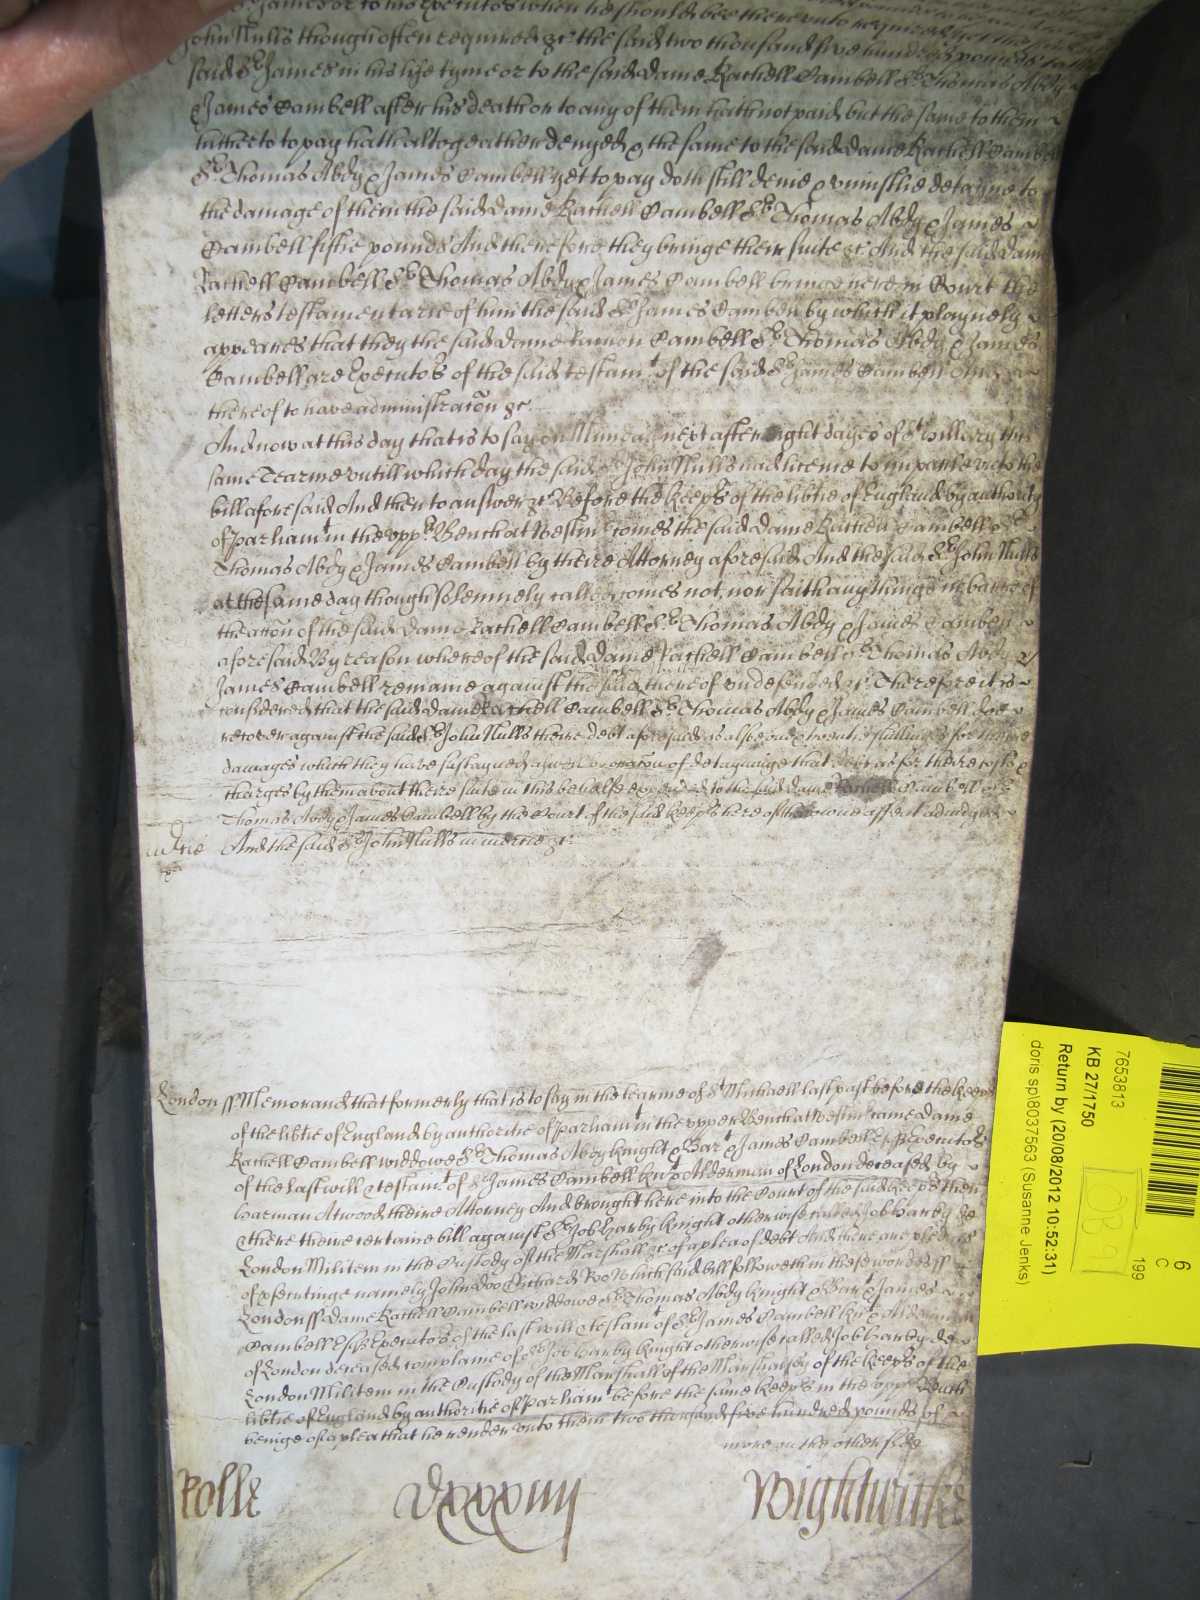 James or to his Executors when he should bee thereunto required yet the said
John Nulls though often required &c the said two thousand five hundred pounds to the
said Sr James in his life tyme or to the said Dame Rachell Cambell Sr Thomas Abdy
& James Cambell after his death or to any of them hath not paid but the same to them
hitherto to pay hath altogeather denyed & the same to the said Dame Rachell Cambell
Sr Thomas Abdy & James Cambell yet to pay doth still denie & uniustlie detayne to
the damage of them the said Dame Rachell Cambell Sr Thomas Abdy & James
Cambell fiftie pounds And therefore they bringe their suite &c And the said Dame
Rachell Cambell Sr Thomas Abdy & James Cambell bringe here in Court the
letters testamentarie of him the said Sr James Cambell by which it playnely
appeares that they the said Dame Rachell Cambell Sr Thomas Abdy & James
Cambell are Executors of the said testamt of the said Sr James Cambell And
thereof to have administracon &c
And now at this day that is to say on Munday next after eight dayes of St Hillary this
same Tearme untill which day the said Sr John Nulls had licence to imparle unto the
bill aforesaid And then to answer &c Before the Keeps of the libtie of England by authority
of parliamt in the upp Bench at Westm comes the said Dame Rachell Cambell Sr
Thomas Abdy & James Cambell by theire Attorney aforesaid And the said Sr John Nulls
at the same day though solemnely called comes not nor saith any thinge in barre of
the accon of the said Dame Rachell Cambell Sr Thomas Abdy & James Cambell
aforesaid By reason whereof the said Dame Rachell Cambell Sr Thomas Abdy &
James Cambell remaine against the said thereof undefended &c Therefore it is
considered that the said Dame Rachell Cambell Sr Thomas Abdy & James Cambell doe
recover against the said Sr John Nulls theire debt aforesaid as also shillings for theire
damages which they have sustayned aswell by occacon of detayninge that debt as for theire costs &
charges by them about theire suite in this behalfe expended to the said Dame Rachell Cambell Sr
Thomas Abdy & James Cambell by the Court of the said Keeps here of theire owne assent adiudged
And the said Sr John Nulls in mercie &c
London ss Memorand that formerly that is to say in the tearme of St Michaell last past before the Keeps
of the libtie of England by authoritie of parliamt in the upper Bench at Westm came Dame
Rachell Cambell widdowe Sr Thomas Abdy knight & Bart & James Cambell Esq Executors
of the last will & testamt of Sr James Cambell knt & Alderman of London deceased by
Harman Atwood theire Attorney And brought here into the Court of the said Keeps then
& there theire certaine bill against Sr Job Harby knight otherwise called Job Harby de
London Militem in the Custody of the Marshall &c of a plea of debt And there are pledges
of prosecutinge namely John Doo & Richard Roo Which said bill followeth in these words ss
London ss Dame Rachell Cambell widdowe Sr Thomas Abdy knight & Bart & James
Cambell Esq Executors of the last will & testamt of Sr James Cambell knt & Alderman
of London deceased complaine of Sr Job Harby knight otherwise called Job Harby de
London Militem in the Custody of the Marshall of the Marshalsey of the Keeps of the
libtie of England by authoritie of Parliamt before the same Keeps in the upp Bench
beinge of a plea that he render unto them two thousand five hundred pounds of
more on the other side
Rolle
dxxxxiiij
Wightwicke
7653813
KB 27/1750
Return by (20/08/2012 10:52:31)
doris sp\8037563 (Susanne Jenks)
6
C
199